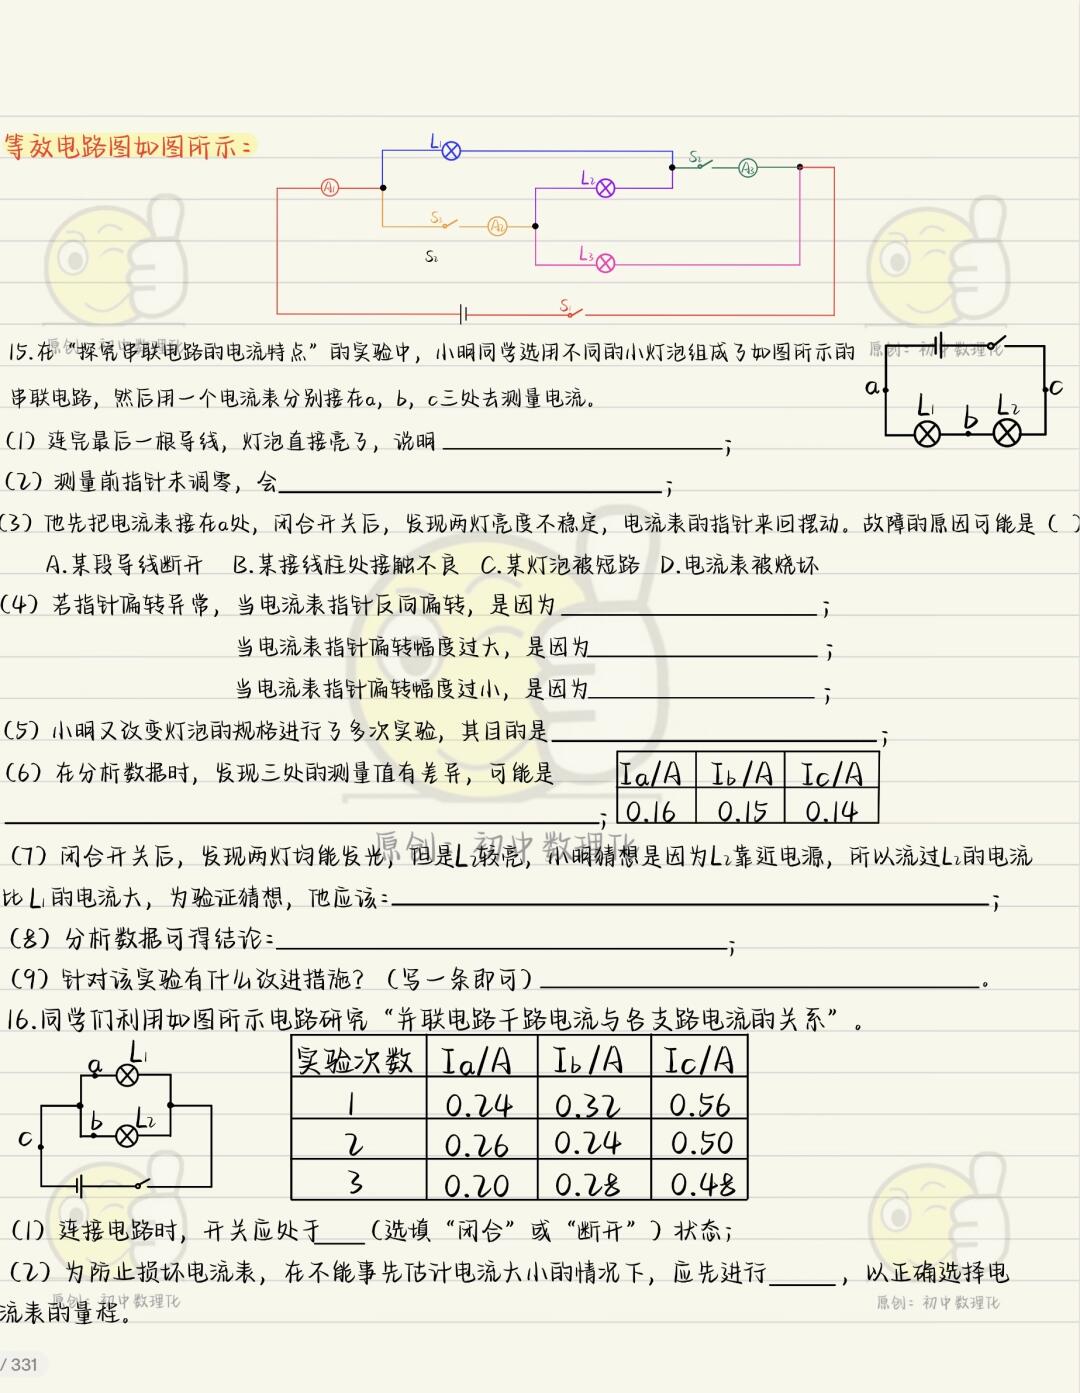 等效电路图如图所示:
L₁
S₂
A₃
A₁
L₂
S₃
A₂
S₂
L₃
S₁
15.在“探究串联电路的电流特点”的实验中，小明同学选用不同的小灯泡组成了如图所示的
串联电路，然后用一个电流表分别接在a，b，c三处去测量电流。
a
c
L₁
b
L₂
(1) 连完最后一根导线，灯泡直接亮了，说明________;
(2) 测量前指针未调零，会________;
(3) 他先把电流表接在a处，闭合开关后，发现两灯亮度不稳定，电流表的指针来回摆动。故障的原因可能是 ( )
A.某段导线断开 B.某接线柱处接触不良 C.某灯泡被短路 D.电流表被烧坏
(4) 若指针偏转异常，当电流表指针反向偏转，是因为________;
当电流表指针偏转幅度过大，是因为________;
当电流表指针偏转幅度过小，是因为________;
(5) 小明又改变灯泡的规格进行了多次实验，其目的是________;
(6) 在分析数据时，发现三处的测量值有差异，可能是
________;
Ia/A Ib/A Ic/A
0.16 0.15 0.14
(7) 闭合开关后，发现两灯均能发光，但是L₂较亮，小明猜想是因为L₂靠近电源，所以流过L₂的电流
比L₁的电流大，为验证猜想，他应该:________;
(8) 分析数据可得结论:________;
(9) 针对该实验有什么改进措施? (写一条即可) ________。
16.同学们利用如图所示电路研究“并联电路干路电流与各支路电流的关系”。
a
L₁
b
L₂
c
实验次数 Ia/A Ib/A Ic/A
1 0.24 0.32 0.56
2 0.26 0.24 0.50
3 0.20 0.28 0.48
(1) 连接电路时，开关应处于____ (选填“闭合”或“断开”) 状态;
(2) 为防止损坏电流表，在不能事先估计电流大小的情况下，应先进行____，以正确选择电
流表的量程。
原创：初中数理化
原创：初中数理化
原创：初中数理化
原创：初中数理化
原创：初中数理化
/ 331